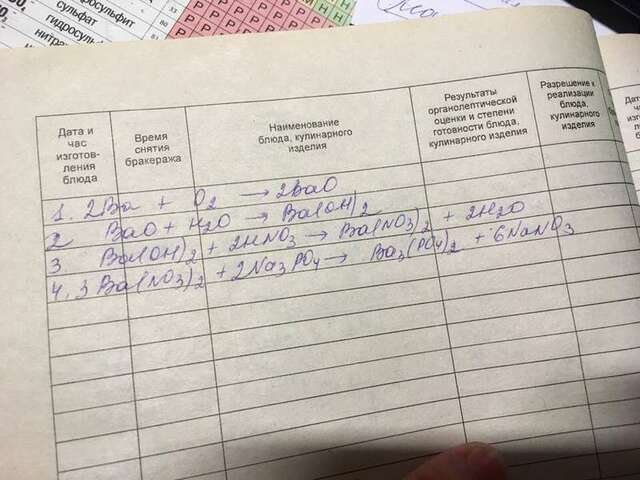 сульфат
гидросульфит
гидросульф
нитра
Дата и час изготов- ления блюда
Время снятия бракеража
Наименование блюда, кулинарного изделия
Результаты органолептической оценки и степени готовности блюда, кулинарного изделия
Разрешение к реализации блюда, кулинарного изделия
1. 2Ba + O2 → 2BaO
2 BaO + H2O → Ba(OH)2
3 Ba(OH)2 + 2HNO3 → Ba(NO3)2 + 2H2O
4. 3 Ba(NO3)2 + 2Na3PO4 → Ba3(PO4)2 + 6NaNO3